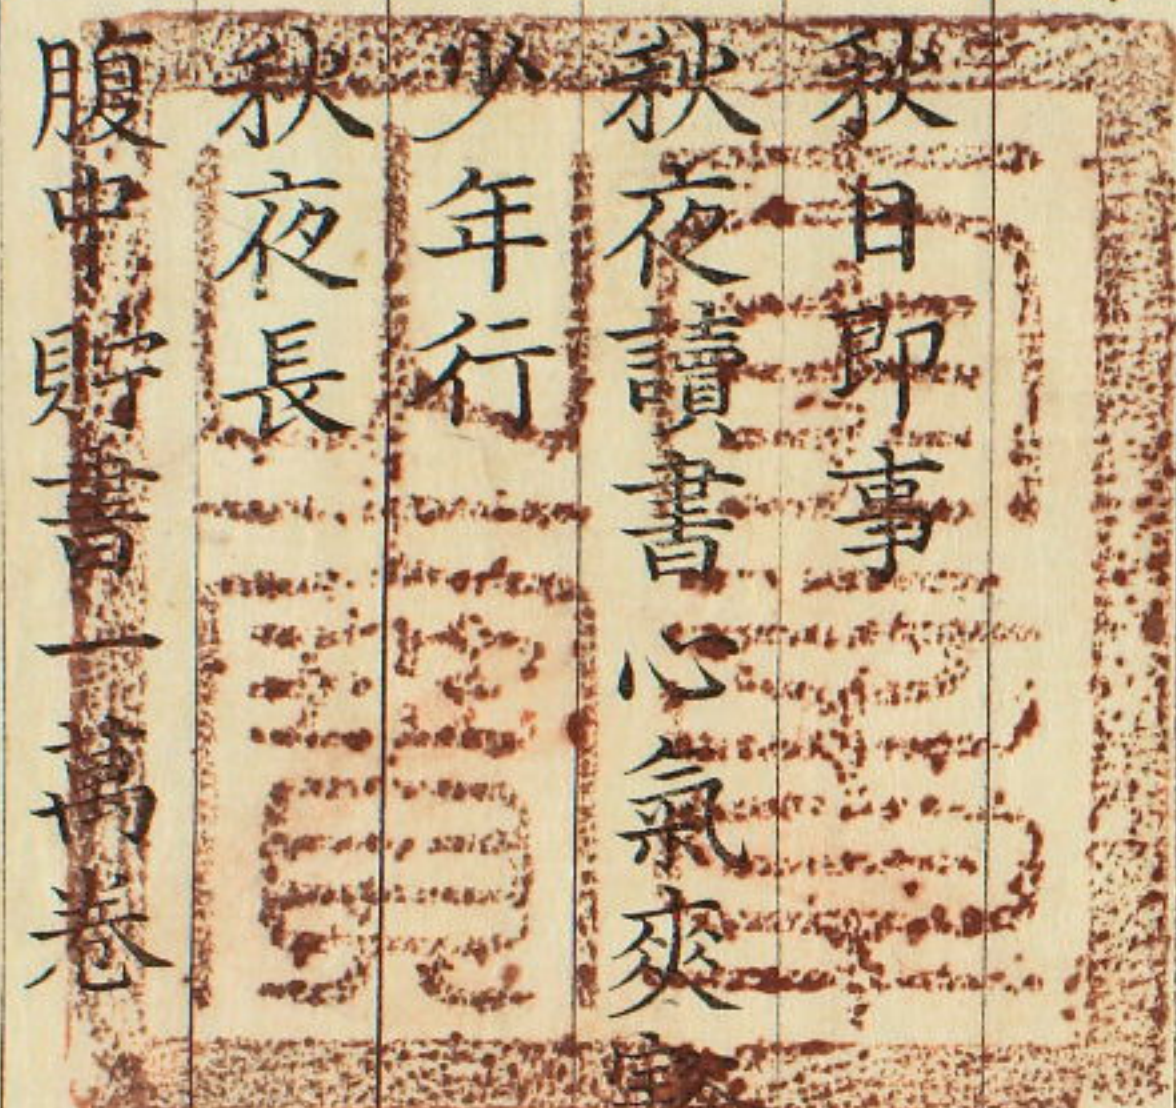 秋日即事
秋夜讀書心氣爽
少年行
秋夜長
腹中貯書一萬卷